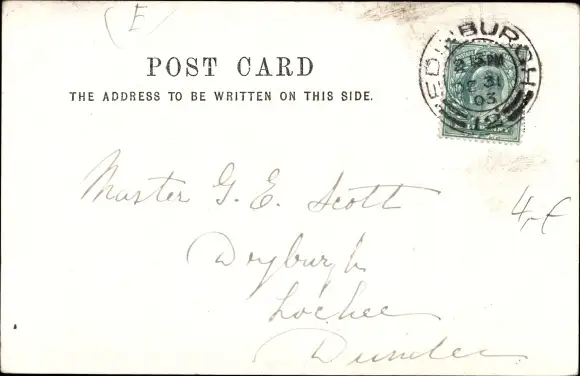 (E)
POST CARD
THE ADDRESS TO BE WRITTEN ON THIS SIDE.
EDINBURGH
31
03
12
Master G. E. Scott
Dryburgh
Lochee
Dundee
4,-€